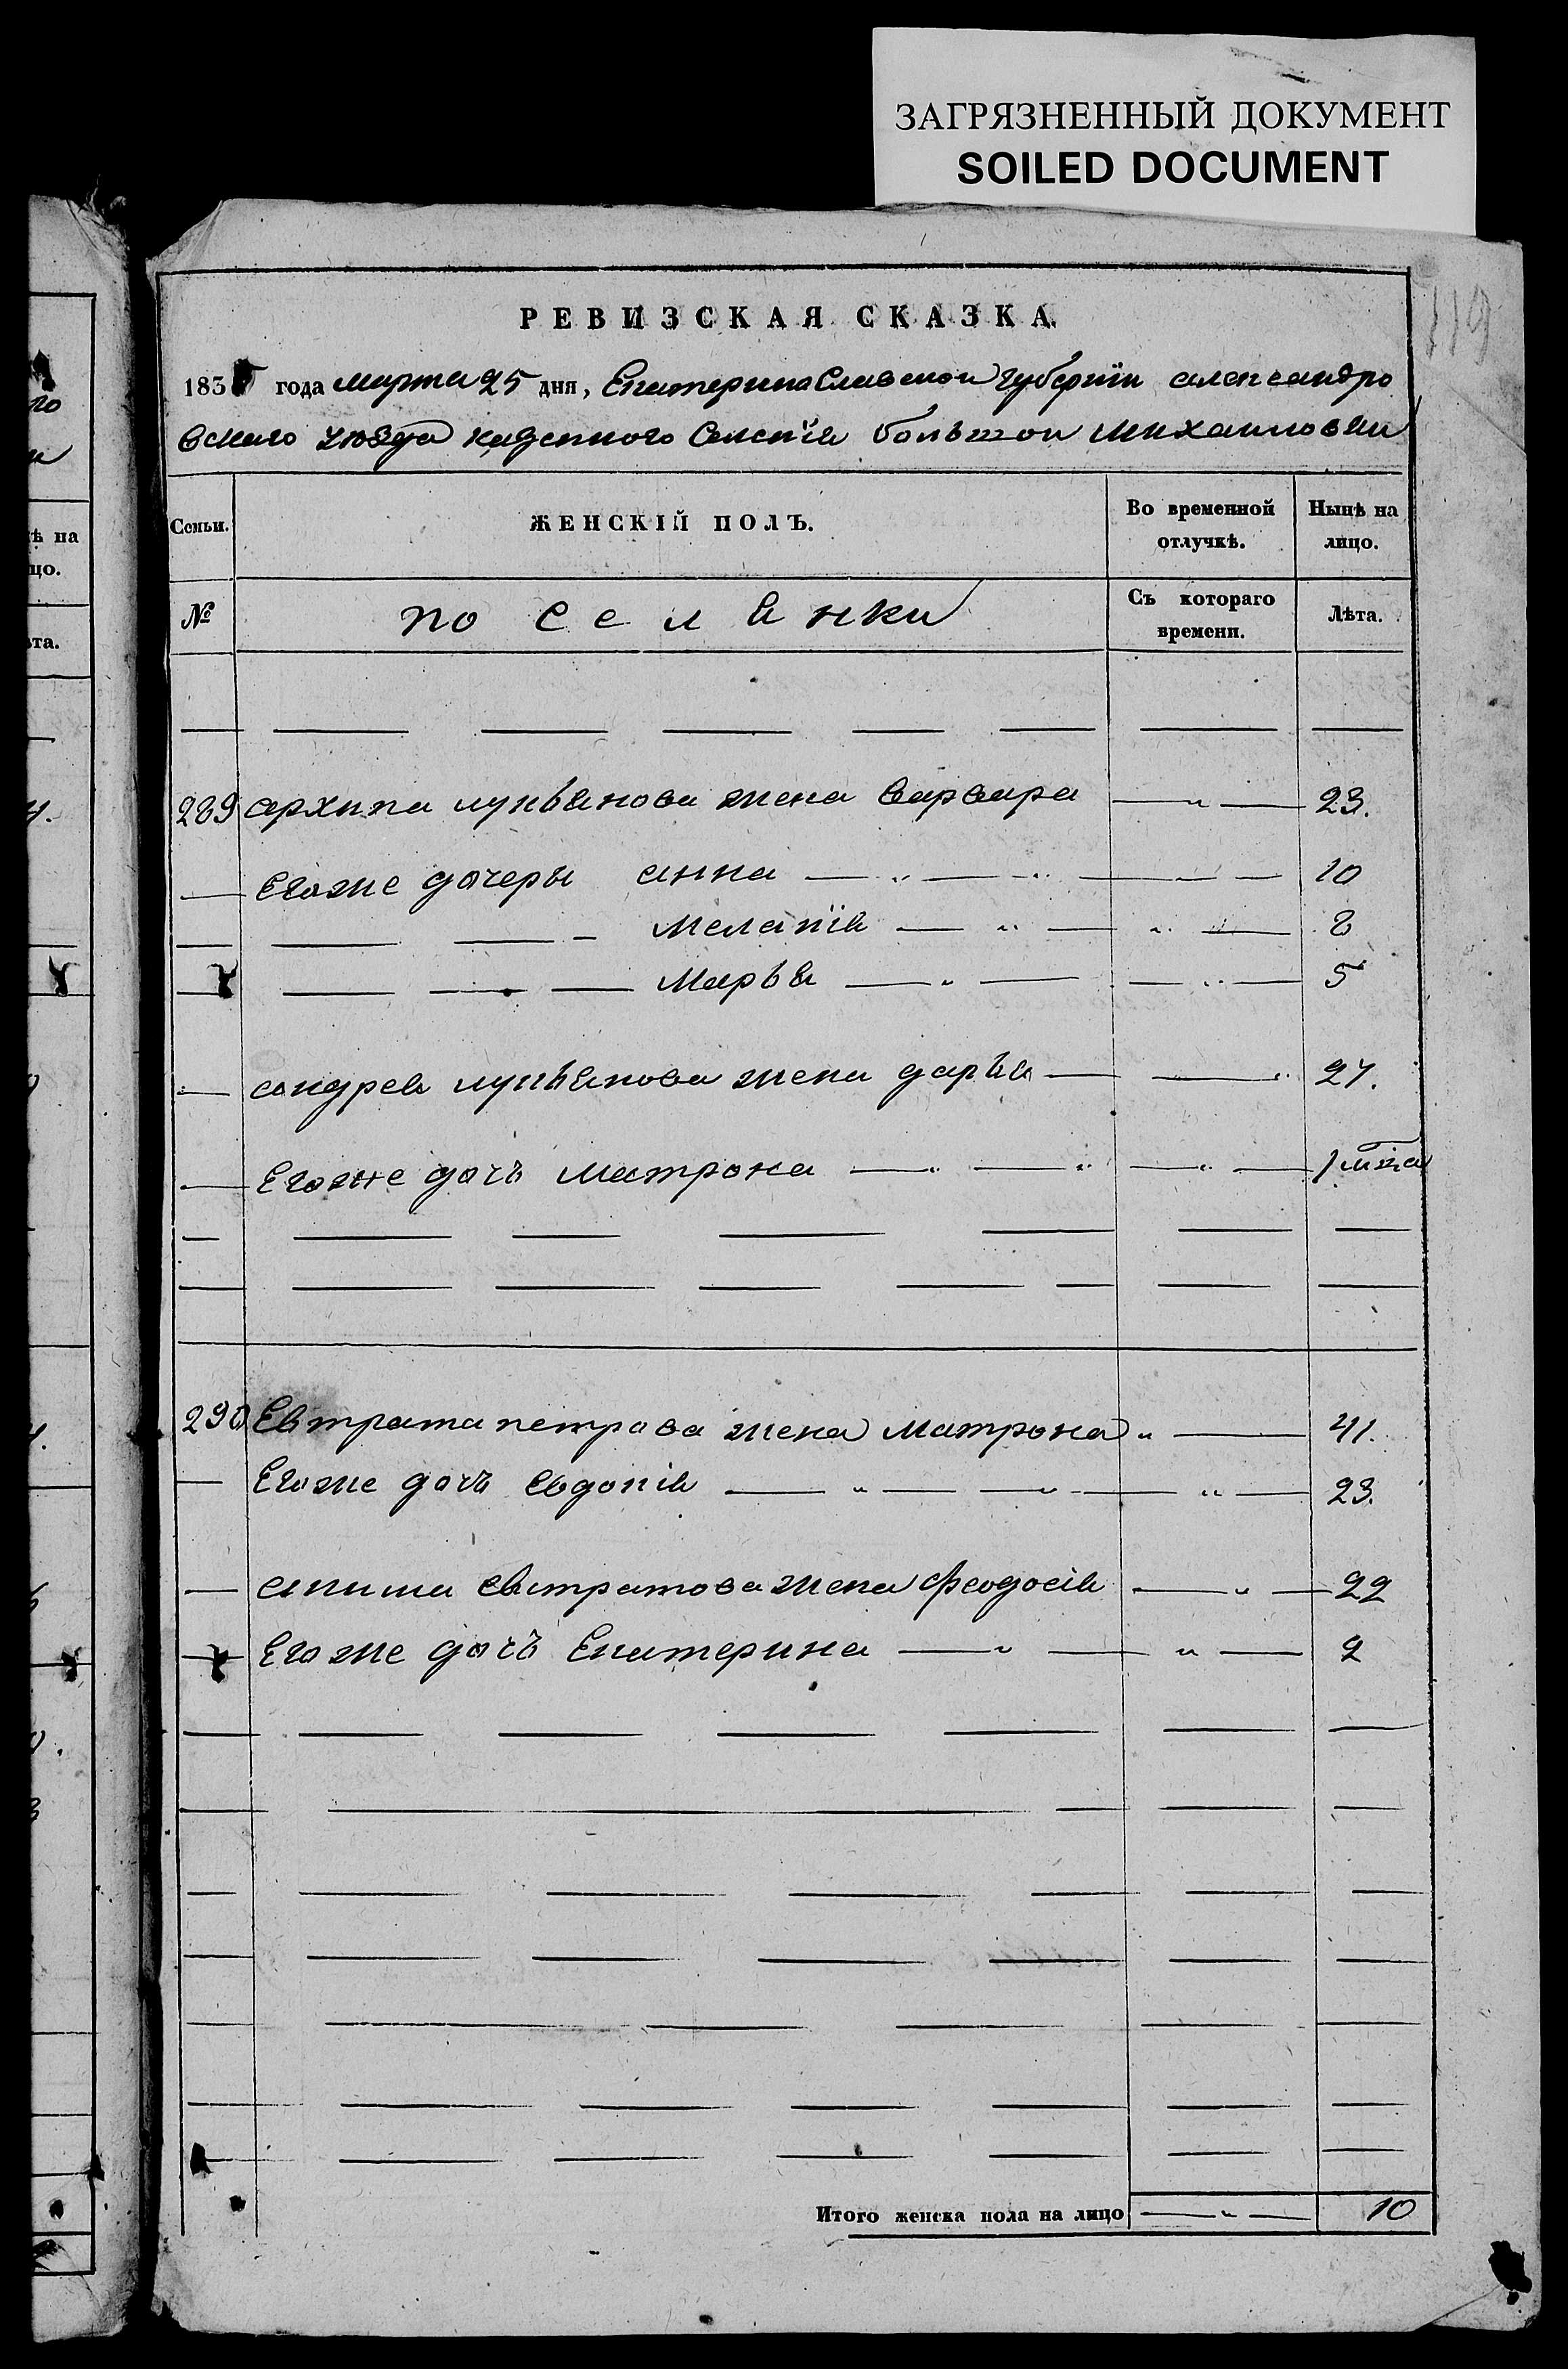 ЗАГРЯЗНЕННЫЙ ДОКУМЕНТ
SOILED DOCUMENT
119
РЕВИЗСКАЯ СКАЗКА.
1835 года марта 25 дня, Екатеринославской губернїи александро
вскаго уезда казенного Селенїя большой михаиловки
Семьи. ЖЕНСКІЙ ПОЛЪ. Во временной отлучкѣ. Нынѣ на лицо.
№ поселянки Съ котораго времени. Лѣта.
289 архипа лукьянова жена варвара — " — 23.
Егоже дочеры анна — " — " — 10
меланїя — " — " — 8
Марья — " — " — 5
андрея лукьянова жена дарья — " 27.
Егоже дочъ матрона — " — " — " — 1 лѣта
290 Евтрата петрова жена матрона " — 41.
Егоже дочъ евдокія — " — " — " — 23.
акима евтратова жена феодосія — " — 22
Егоже дочъ Екатерина — " — " — 2
Итого женска пола на лицо — " — 10